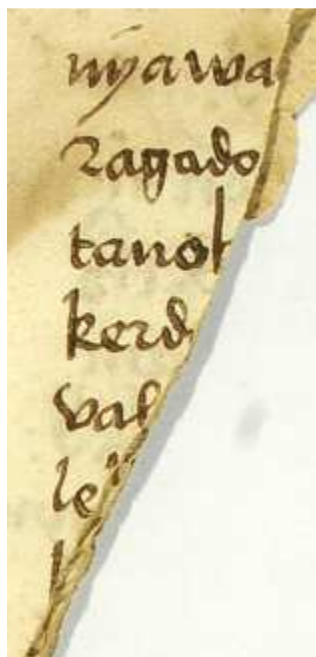 nyawa
Ragado
tanot
kerd
val
le